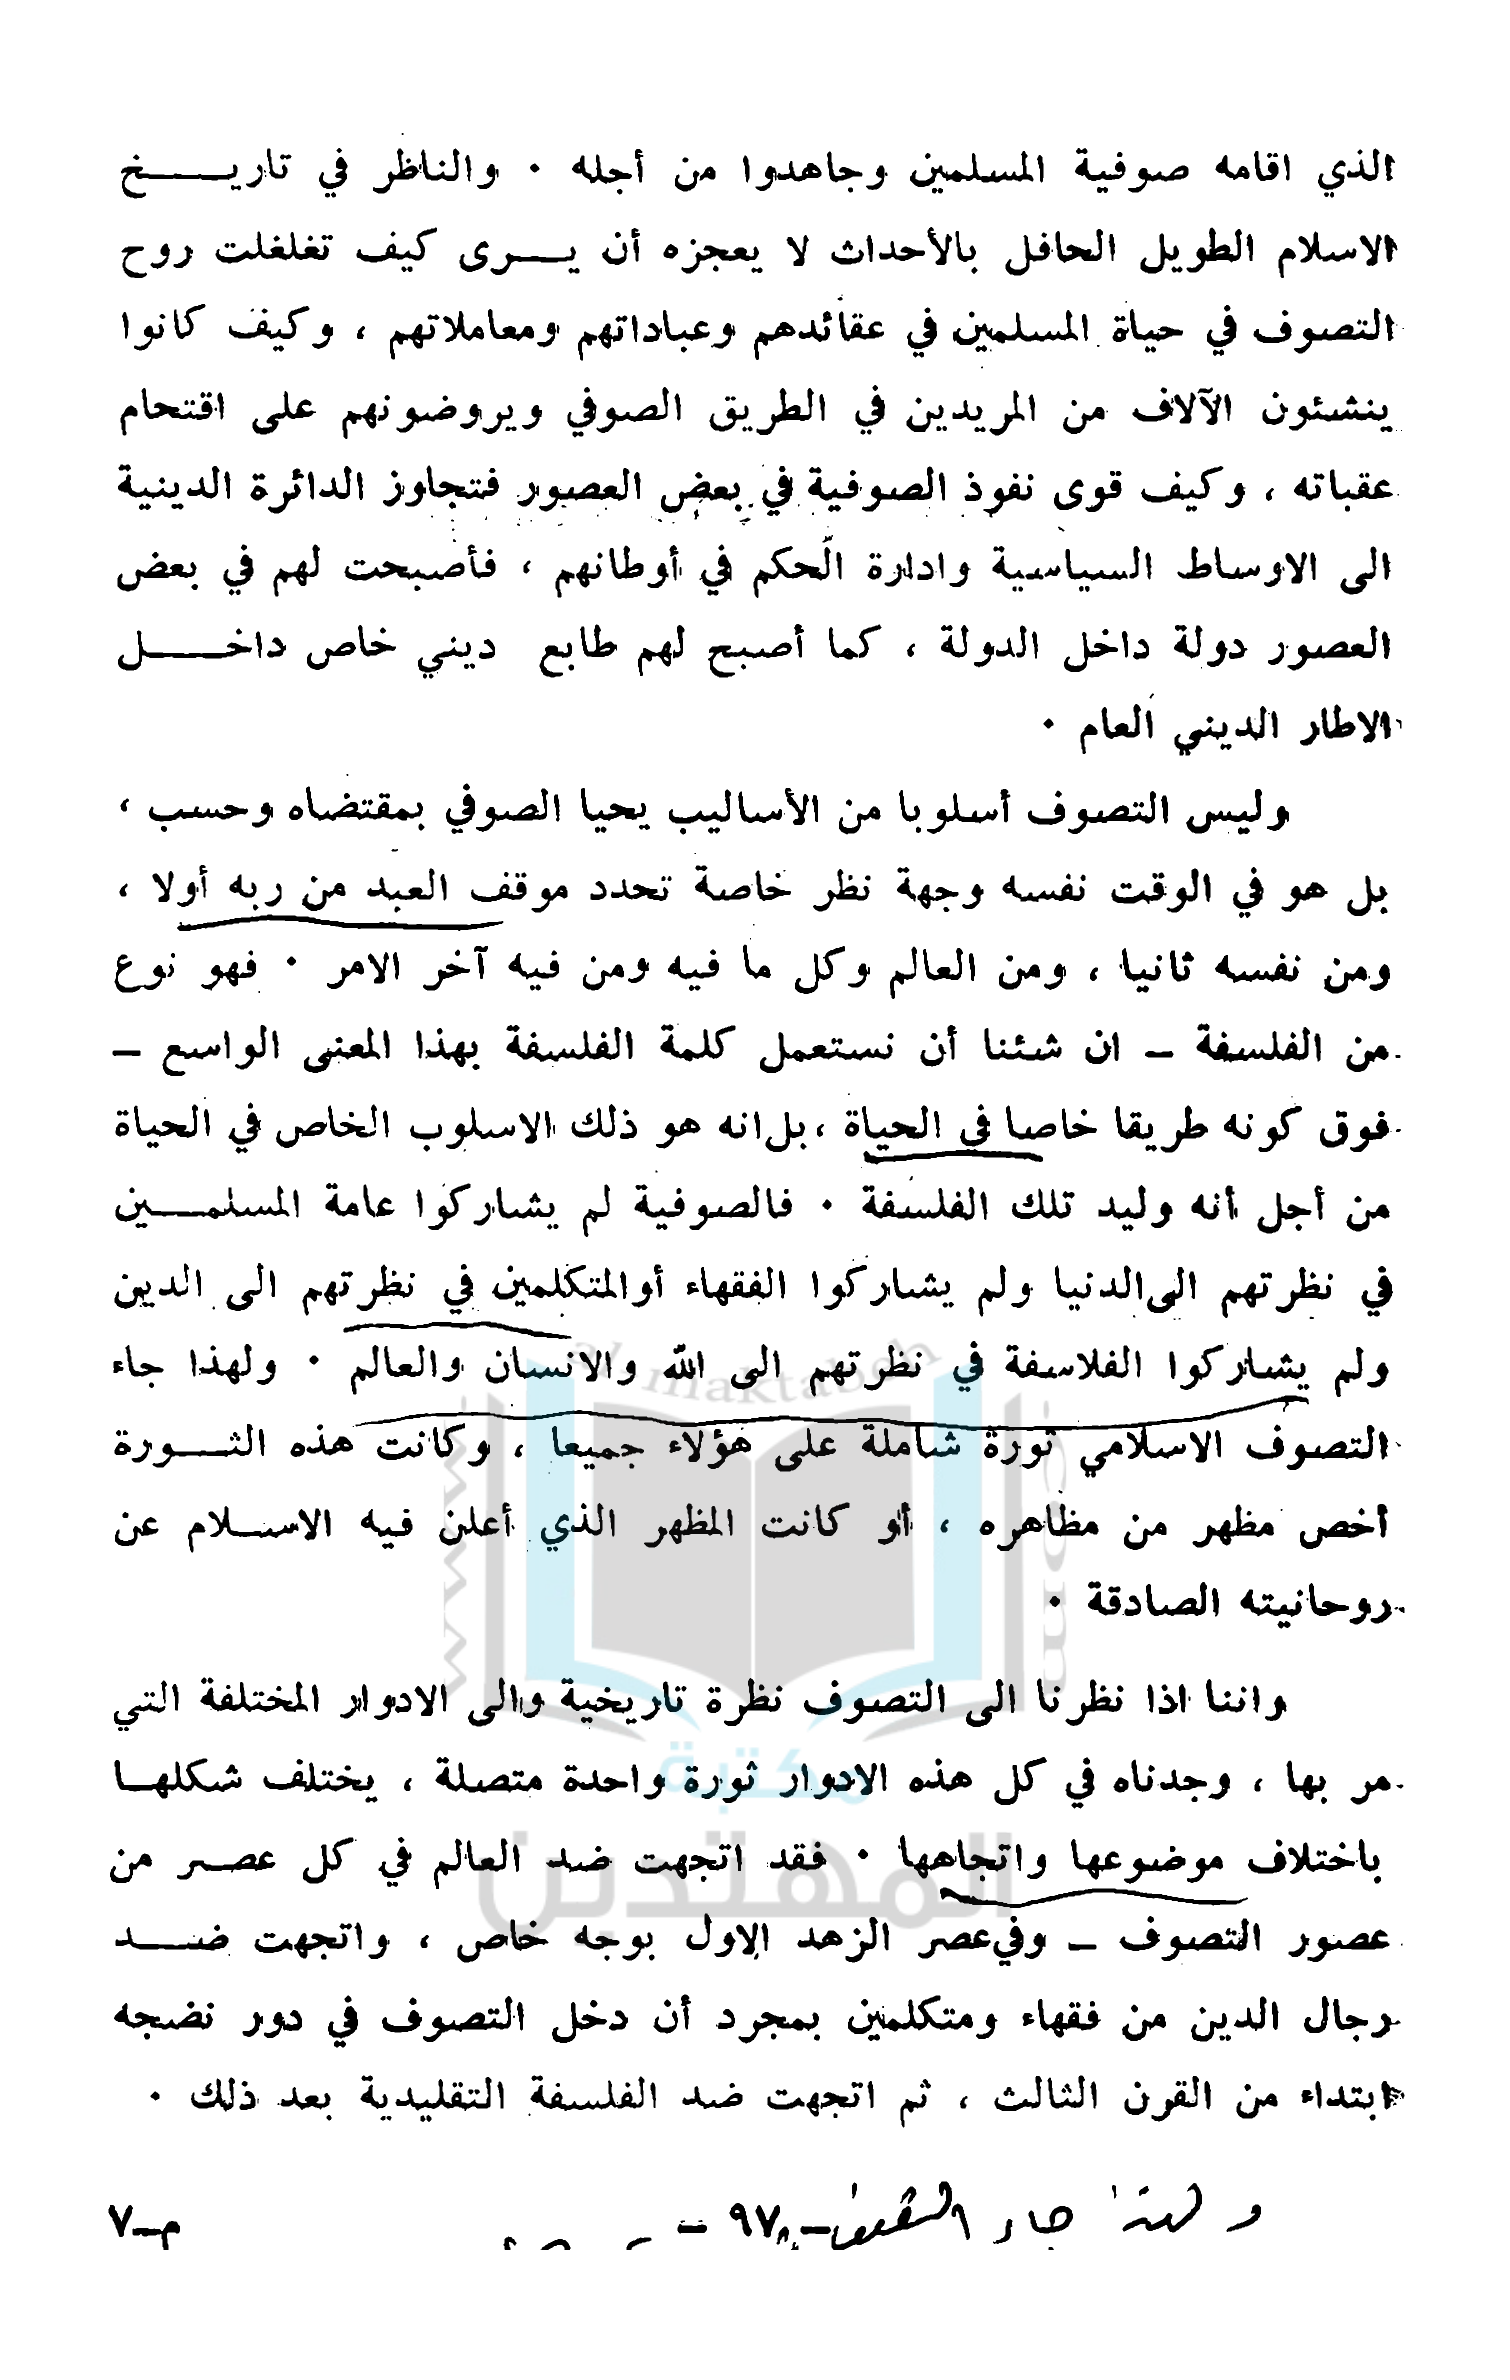 الذي اقامه صوفية المسلمين وجاهدوا من أجله ٠ والناظر في تاريخ
الاسلام الطويل الحافل بالأحداث لا يعجزه أن يرى كيف تغلغلت روح
التصوف في حياة المسلمين في عقائدهم وعباداتهم ومعاملاتهم ، وكيف كانوا
ينشئون الآلاف من المريدين في الطريق الصوفي ويروضونهم على اقتحام
عقباته ، وكيف قوى نفوذ الصوفية في بعض العصور فتجاوز الدائرة الدينية
الى الاوساط السياسية وادارة الحكم في أوطانهم ، فأصبحت لهم في بعض
العصور دولة داخل الدولة ، كما أصبح لهم طابع ديني خاص داخل
الاطار الديني العام ٠
وليس التصوف أسلوبا من الأساليب يحيا الصوفي بمقتضاه وحسب ،
بل هو في الوقت نفسه وجهة نظر خاصة تحدد موقف العبد من ربه أولا ،
ومن نفسه ثانيا ، ومن العالم وكل ما فيه ومن فيه آخر الامر ٠ فهو نوع
من الفلسفة – ان شئنا أن نستعمل كلمة الفلسفة بهذا المعنى الواسع –
فوق كونه طريقا خاصا في الحياة ، بل انه هو ذلك الاسلوب الخاص في الحياة
من أجل أنه وليد تلك الفلسفة ٠ فالصوفية لم يشاركوا عامة المسلمين
في نظرتهم الى الدنيا ولم يشاركوا الفقهاء أو المتكلمين في نظرتهم الى الدين
ولم يشاركوا الفلاسفة في نظرتهم الى الله والانسان والعالم ٠ ولهذا جاء
التصوف الاسلامي ثورة شاملة على هؤلاء جميعا ، وكانت هذه الثورة
أخص مظهر من مظاهره ، أو كانت المظهر الذي أعلن فيه الاسلام عن
روحانيته الصادقة ٠
واننا اذا نظرنا الى التصوف نظرة تاريخية والى الادوار المختلفة التي
مر بها ، وجدناه في كل هذه الادوار ثورة واحدة متصلة ، يختلف شكلها
باختلاف موضوعها واتجاهها ٠ فقد اتجهت ضد العالم في كل عصر من
عصور التصوف – وفي عصر الزهد الاول بوجه خاص ، واتجهت ضد
رجال الدين من فقهاء ومتكلمين بمجرد أن دخل التصوف في دور نضجه
ابتداء من القرن الثالث ، ثم اتجهت ضد الفلسفة التقليدية بعد ذلك ٠
و لهذا جاء – ٩٧ – م–٧
al maktabeh
مكتبة
المهتدين